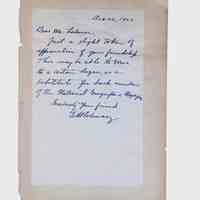 Dear Mr.
Just a slight token of
appreciation of your friendship.
This may be able to serve
to a certain degree, as a
substitute for back numbers
of the National Geographic Magazine
Sincerely your friend